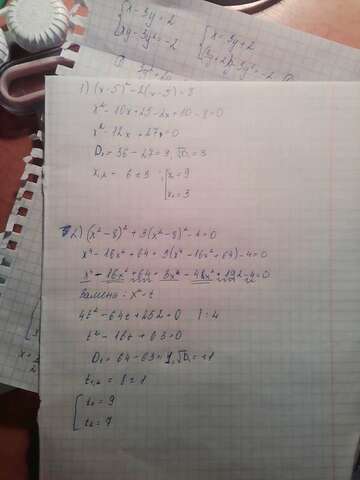 x - 3y = 2
xy - 3y² = -2
x = 3y + 2
1) (x - 5)² - 2(x - 5) = 3
x² - 10x + 25 - 2x + 10 - 8 = 0
x² - 12x + 27 = 0
D₁ = 36 - 27 = 9, √D₁ = 3
x₁,₂ = 6 ± 3
x₁ = 9
x₂ = 3
2) (x² - 8)² + 3(x² - 8)² - 4 = 0
x⁴ - 16x² + 64 + 3(x⁴ - 16x² + 64) - 4 = 0
x⁴ - 16x² + 64 + 3x⁴ - 48x² + 192 - 4 = 0
Замена: x² = t
4t² - 64t + 252 = 0 | : 4
t² - 16t + 63 = 0
D₁ = 64 - 63 = 1, √D₁ = ±1
t₁,₂ = 8 ± 1
t₁ = 9
t₂ = 7